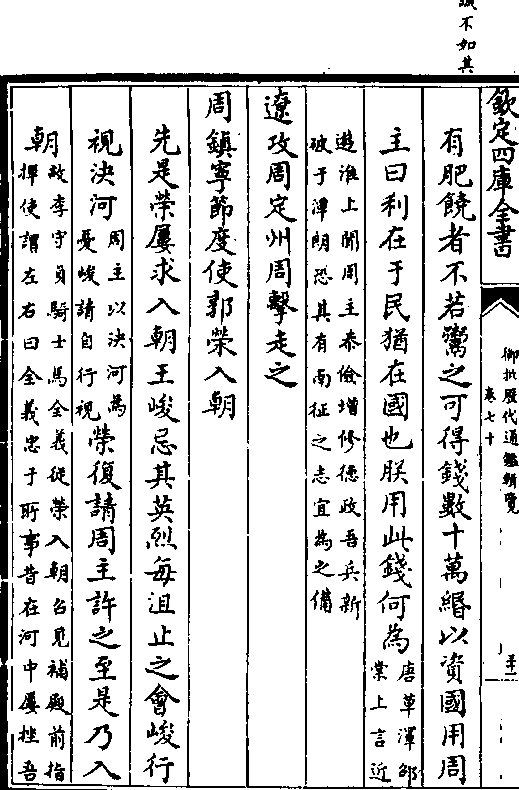 誠不如其
欽定四庫全書
御批歷代通鑑輯覽
卷七十
有肥饒者不若鬻之可得錢數十萬緡以資國用周
主曰利在于民猶在國也朕用此錢何為
唐草澤邵
棠上言近
遊淮上聞周主恭儉增修德政吾兵新
破于潭朗恐其有南征之志宜為之備
遼攻周定州周擊走之
周鎮寧節度使郭榮入朝
先是榮屢求入朝王峻忌其英烈每沮止之會峻行
視決河
周主以決河為
憂峻請自行視
榮復請周主許之至是乃入
朝
故李守貞騎士馬全義從榮入朝召見補殿前指
揮使謂左右曰全義忠于所事昔在河中屢挫吾